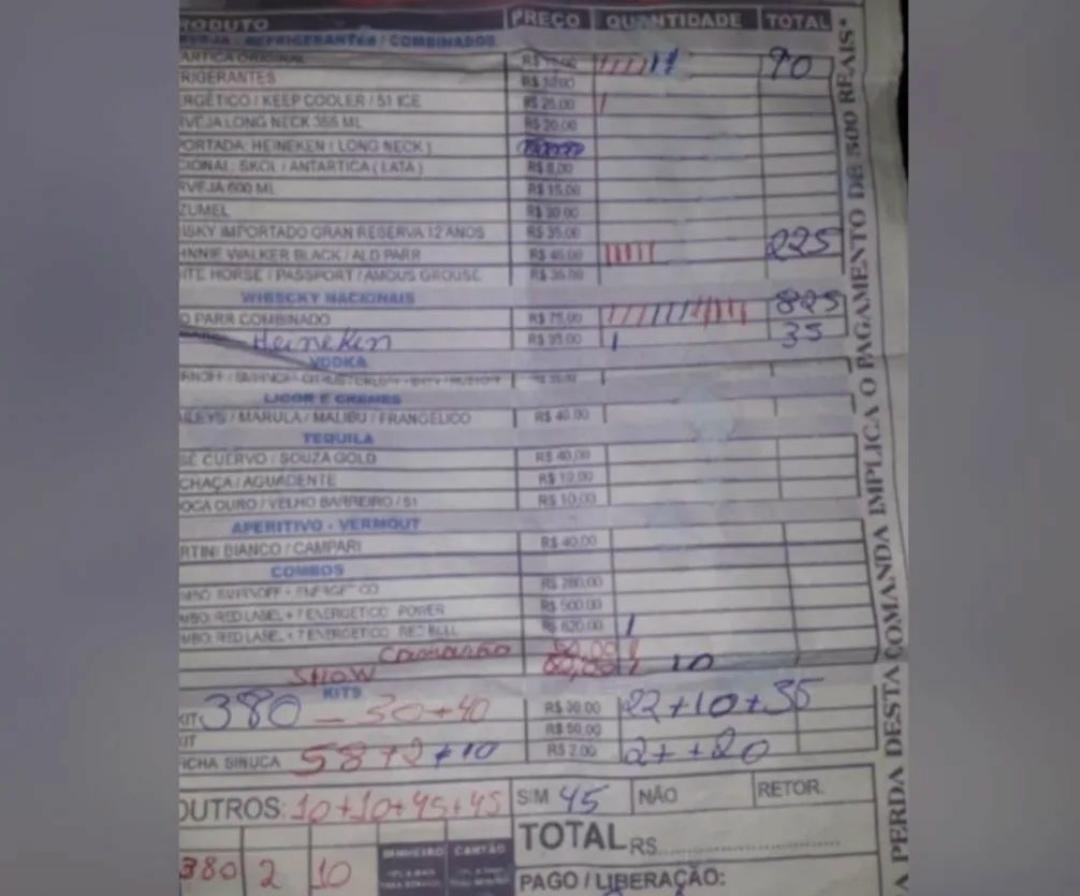 RODUTO PREÇO QUANTIDADE TOTAL
REFRIGERANTES / COMBINADOS
ARTICA ORIGINAL R$ 90
RIGERANTES R$ 10,00
RGÉTICO / KEEP COOLER / 51 ICE R$ 25,00
RVEJA LONG NECK 355 ML R$ 20,00
PORTADA: HEINEKEN ( LONG NECK )
CIONAL: SKOL / ANTARTICA ( LATA ) R$ 8,00
RVEJA 600 ML R$ 15,00
ZUMEL R$ 30,00
ISKY IMPORTADO GRAN RESERVA 12 ANOS R$ 35,00
HNNIE WALKER BLACK / ALD PARR R$ 45,00 225
ITE HORSE / PASSPORT / AMOUS GROUSE R$
WIESCKY NACIONAIS
D PARR COMBINADO R$ 75,00 825
Heineken R$ 35,00 35
VODKA
LICOR E CREMES
ILEYS / MARULA / MALIBU / FRANGELICO R$ 40,00
TEQUILA
SÉ CUERVO / SOUZA GOLD R$ 40,00
CHAÇA / AGUADENTE R$ 10,00
OCA OURO / VELHO BARREIRO / 51 R$ 10,00
APERITIVO - VERMOUT
RTINI BIANCO / CAMPARI R$ 40,00
COMBOS
R$ 280,00
MBO: RED LABEL + 7 ENERGETICO POWER R$ 500,00
MBO: RED LABEL + 7 ENERGETICO RED BULL R$ 620,00
SHOW 10
KITS
KIT 380 - 30+40 R$ 30,00 22+10+35
KIT R$ 50,00
FICHA SINUCA 5872+10 R$ 2,00 2++20
OUTROS: 10+10+45+45 SIM 45 NÃO RETOR.
380 2 10 DINHEIRO CARTÃO TOTAL RS
PAGO / LIBERAÇÃO:
A PERDA DESTA COMANDA IMPLICA O PAGAMENTO DE 500 REAIS*